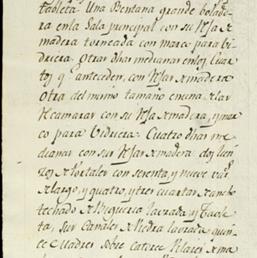 tableta. Una Ventana grande bolade
ra en la Sala principal con su Rexa de
madera torneada con marco para bi
driera. Otras dhas medianas en los quar
tos q anteceden, con Rexas de madera
Otra del mismo tamaño en una de las
Recamaras con su Rexa de madera, y mar
co para vidriera. Quatro dhas me
dianas con sus Rexas de madera. dos lien
zos de Portales con sesenta, y nueve var
de largo, y quatro, y tres quartas de ancho
techado de Vigueria labrada y
ta, sus Canales de Piedra labrada, quin
ce Quadres sobre Catorce Pilares de ma